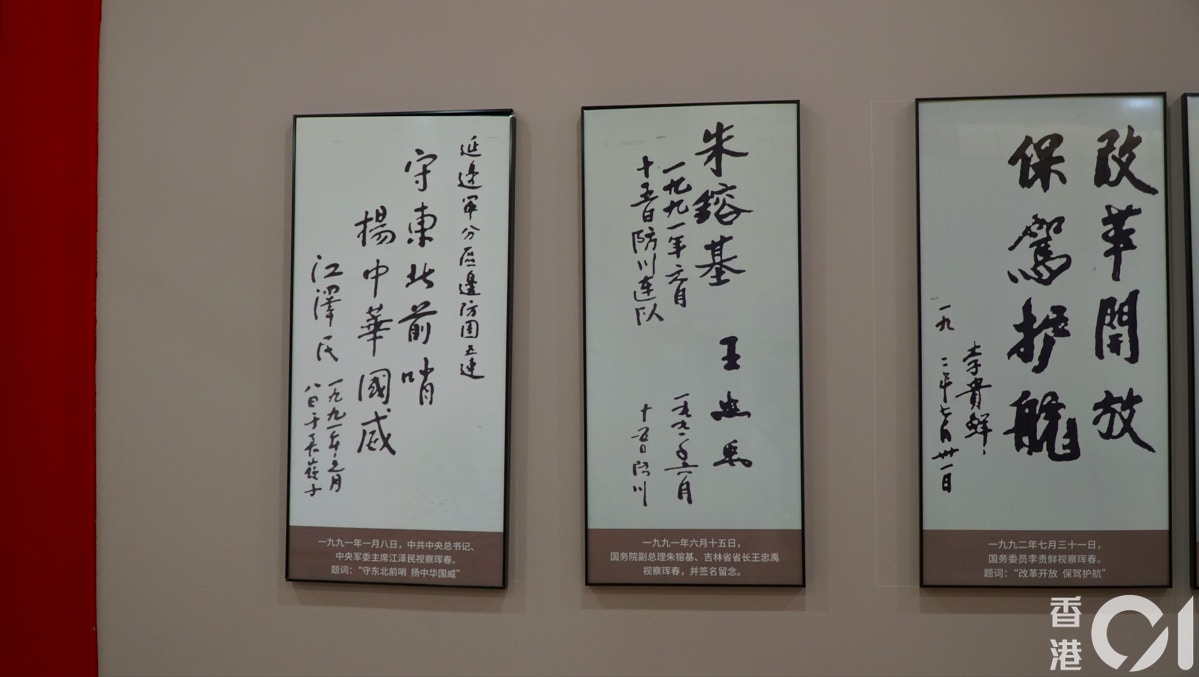 延邊軍分區邊防團五連
守東北前哨
揚中華國威
江澤民 一九九一年元月
八日于長嶺子
一九九一年一月八日，中共中央总书记、
中央军委主席江泽民视察珲春。
题词：“守东北前哨 扬中华国威”
朱鎔基
一九九一年六月
十五日防川连队
王忠禹
一九九一年六月
十五日防川
一九九一年六月十五日，
国务院副总理朱镕基、吉林省省长王忠禹
视察珲春，并签名留念。
改革開放
保駕护航
李貴鲜
一九九二年七月卅一日
一九九二年七月三十一日，
国务委员李贵鲜视察珲春。
题词：“改革开放 保驾护航”
香港01